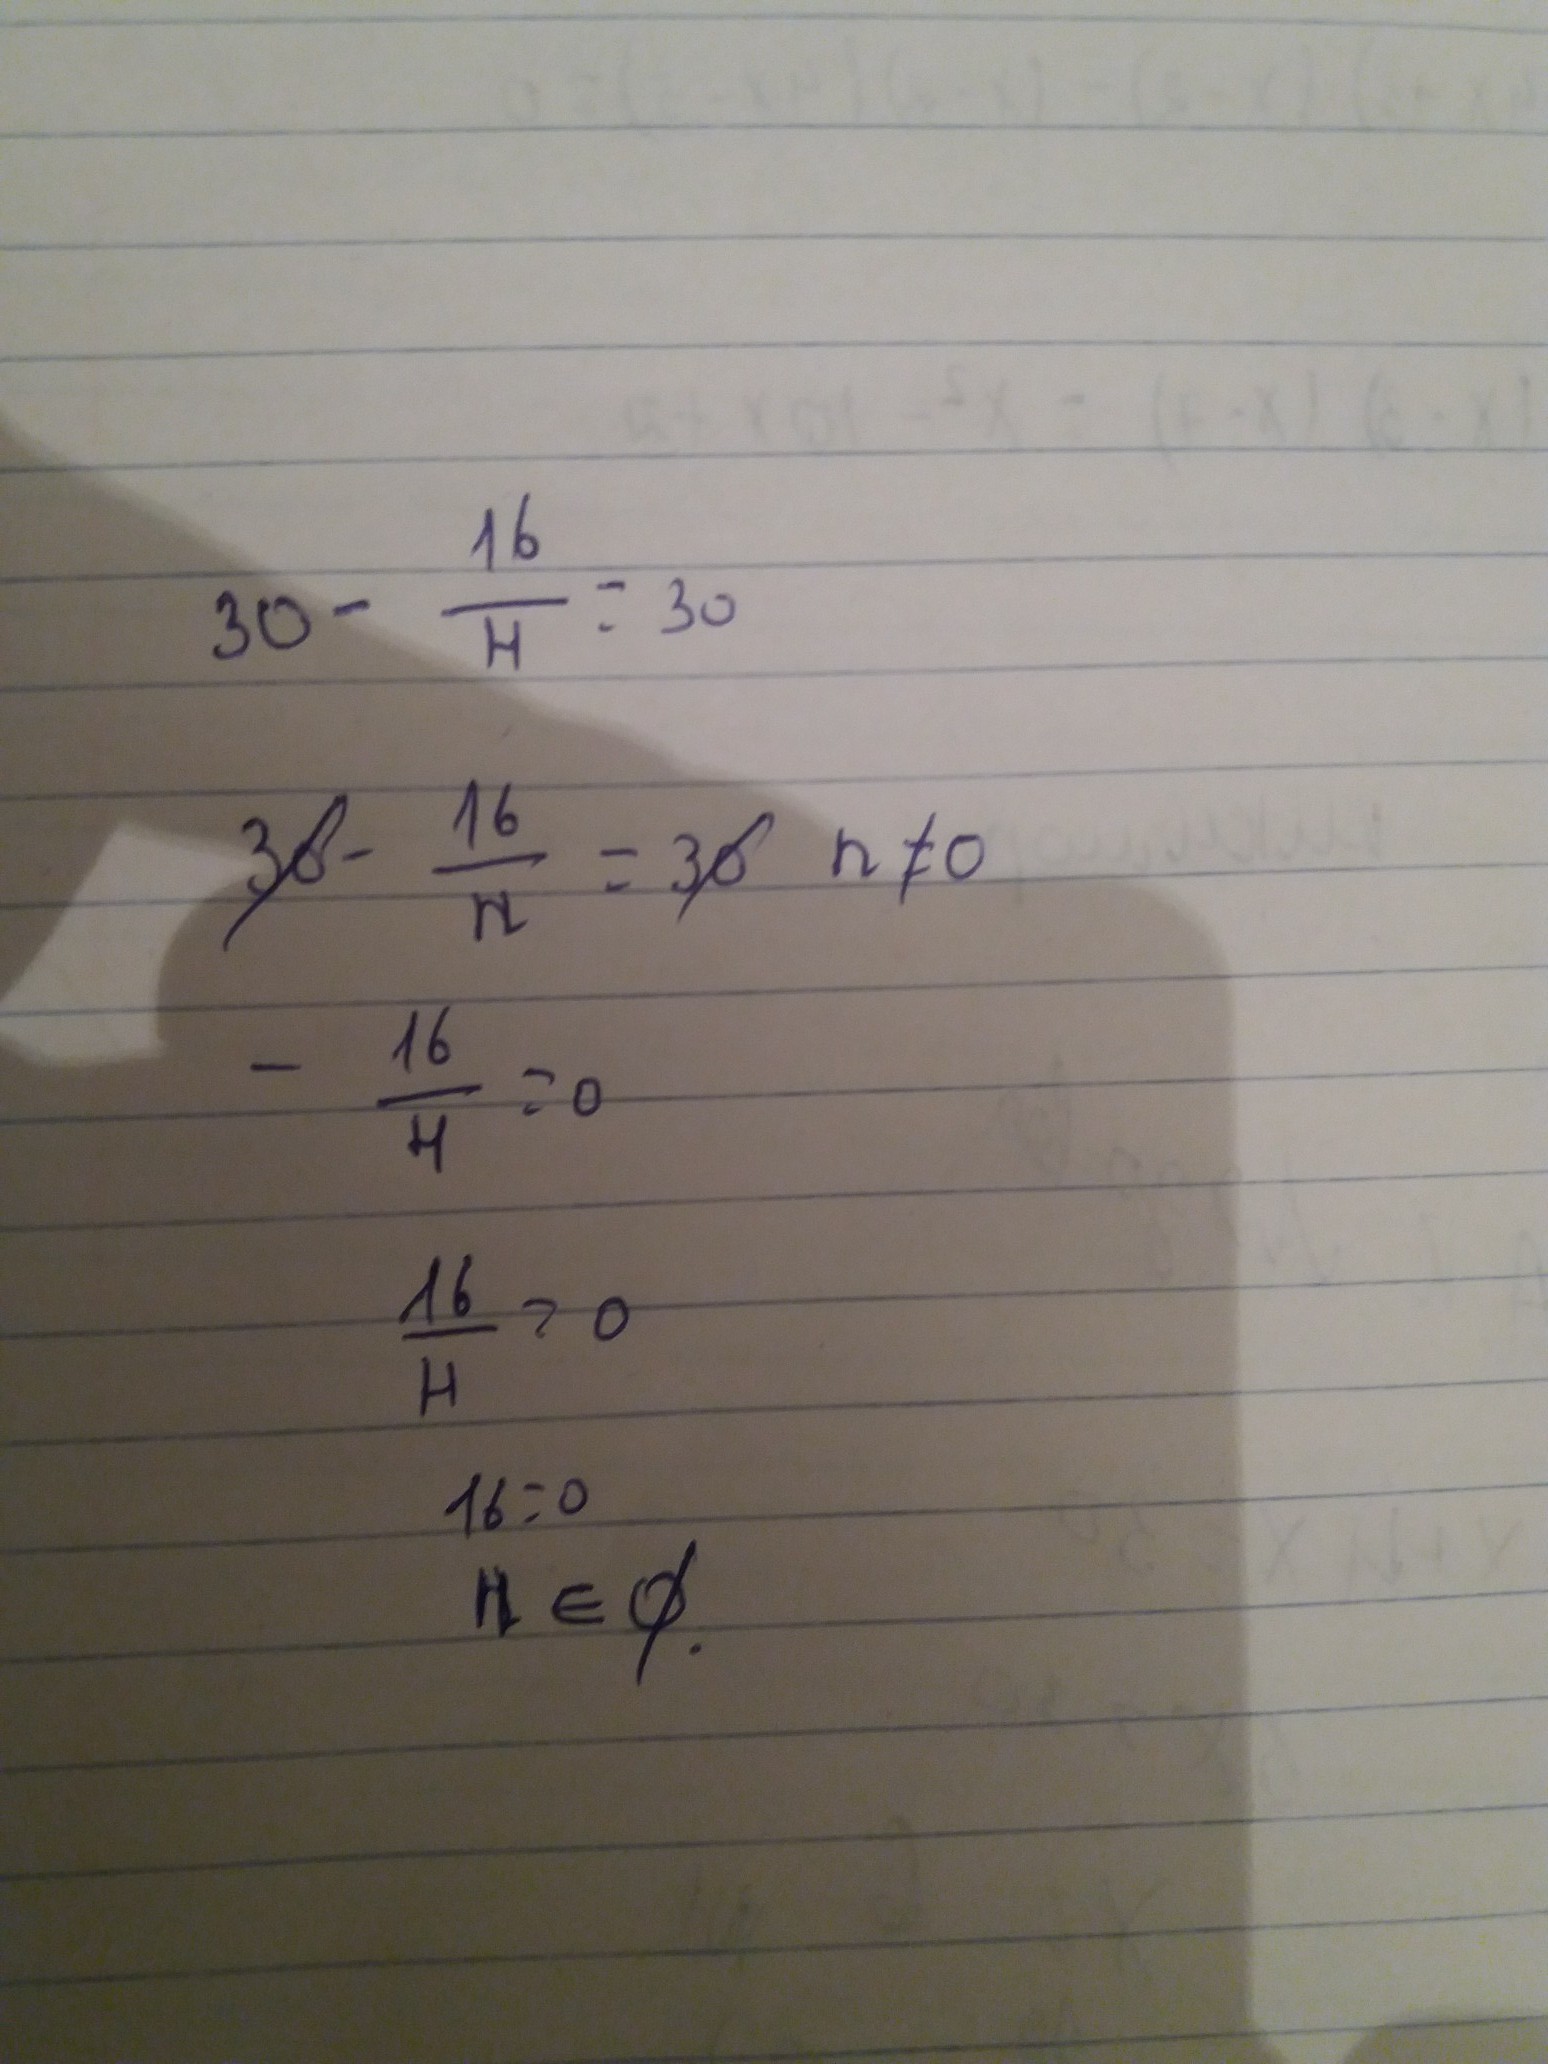 30 - 16/н = 30
30 - 16/n = 30 n ≠ 0
- 16/н = 0
16/н = 0
16 = 0
н ∈ ∅.